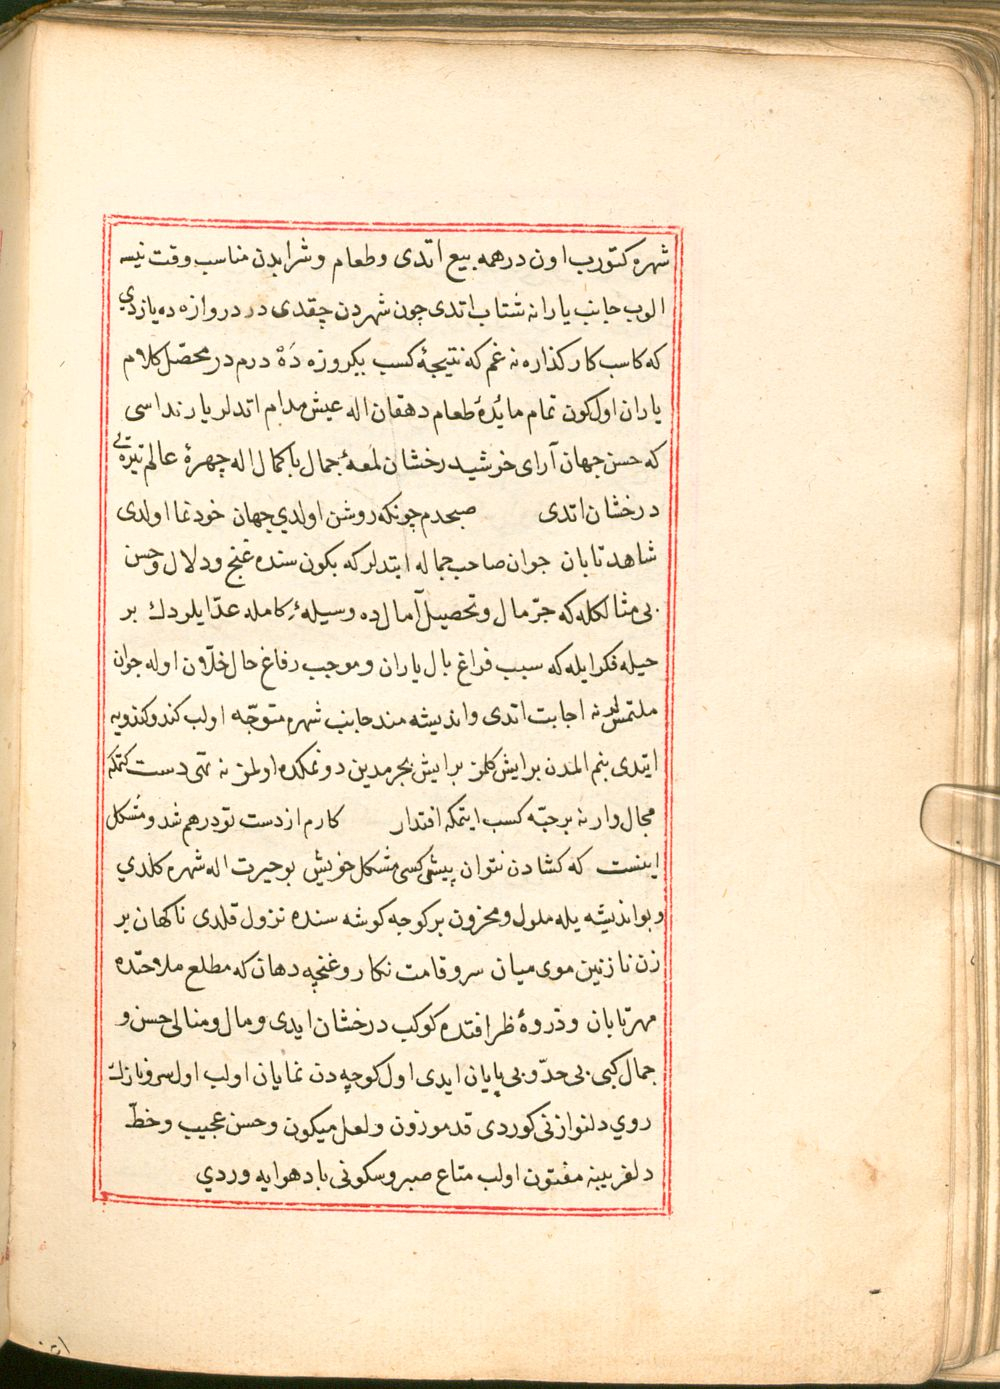 شهره کتورب اون درهمه بیع اتدی و طعام و شرابدن مناسب وقت نیسه
الوب جانب یارانه شتاب اتدی چون شهردن چقدی در دروازه ده یازدی
که کاسب کار کذاره نه غم که نتیجهٔ کسب یکروزه دَهْ درم در محصّل کلام
یاران اول کون تمام مائدهٔ طعام دهقان اله عیش مدام اتدلر یارنداسی
که حسن جهان آرای خورشید رخشان لمعهٔ جمال باکمال اله چهرهٔ عالم تیره‌ی
درخشان اتدی صبحدم چونکه روشن اولدی جهان خودنما اولدی
شاهد تابان جوان صاحب جماله ایتدلر که بکون سنده غنج ودلال وحسن
بی مثالکله که جرّ مال و تحصیل آمال ده وسیلهٔ کامله عدّ ایلردك بر
حیله فکر ایله که سبب فراغ بال یاران و موجب رفاغ حال خلّان اوله جوان
ملتمسلرنه اجابت اتدی واندیشه مند جانب شهره متوجّه اولب کندو کندویه
ایتدی بنم المدن بر ایش کلمز بر ایش بجرمدین دونمکده اولمز نه تهی دست کتمکه
مجال وار نه بر حبّه کسب ایتمکه اقتدار کارم از دست تو درهم شد و مشکل
اینست که کشادن نتوان پیش کسی مشکل خویش بو حیرت اله شهره کلدی
و بو اندیشه یله ملول و محزون بر کوجه کوشه سنده نزول قلدی ناکهان بر
زن نازنین موی میان سرو قامت نکار و غنچه دهان که مطلع ملاحتده
مهر تابان و ذروهٔ ظرافتده کوکب درخشان ایدی و مال و منالی حسن و
جمال کبی بی حدّ و بی پایان ایدی اول کوچه دن نمایان اولب اول سرو نازك
روی دلنوازنی کوردی قد موزون و لعل میکون و حسن عجیب و خطّ
دلفریبنه مفتون اولب متاع صبر و سکونی باد هوایه وردی